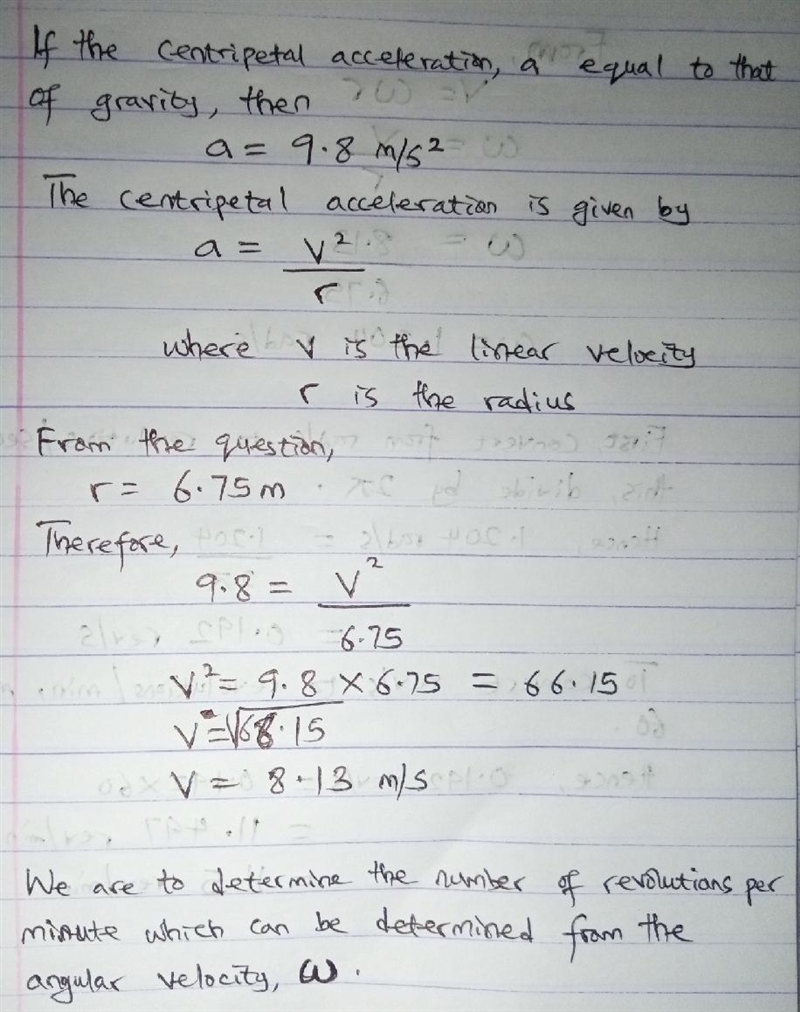 If the centripetal acceleration, a equal to that
of gravity, then
a = 9.8 m/s²
The centripetal acceleration is given by
a = v²
r
where v is the linear velocity
r is the radius
From the question,
r = 6.75 m
Therefore,
9.8 = v²
6.75
v² = 9.8 × 6.75 = 66.15
v = √66.15
v = 8.13 m/s
We are to determine the number of revolutions per
minute which can be determined from the
angular velocity, ω.